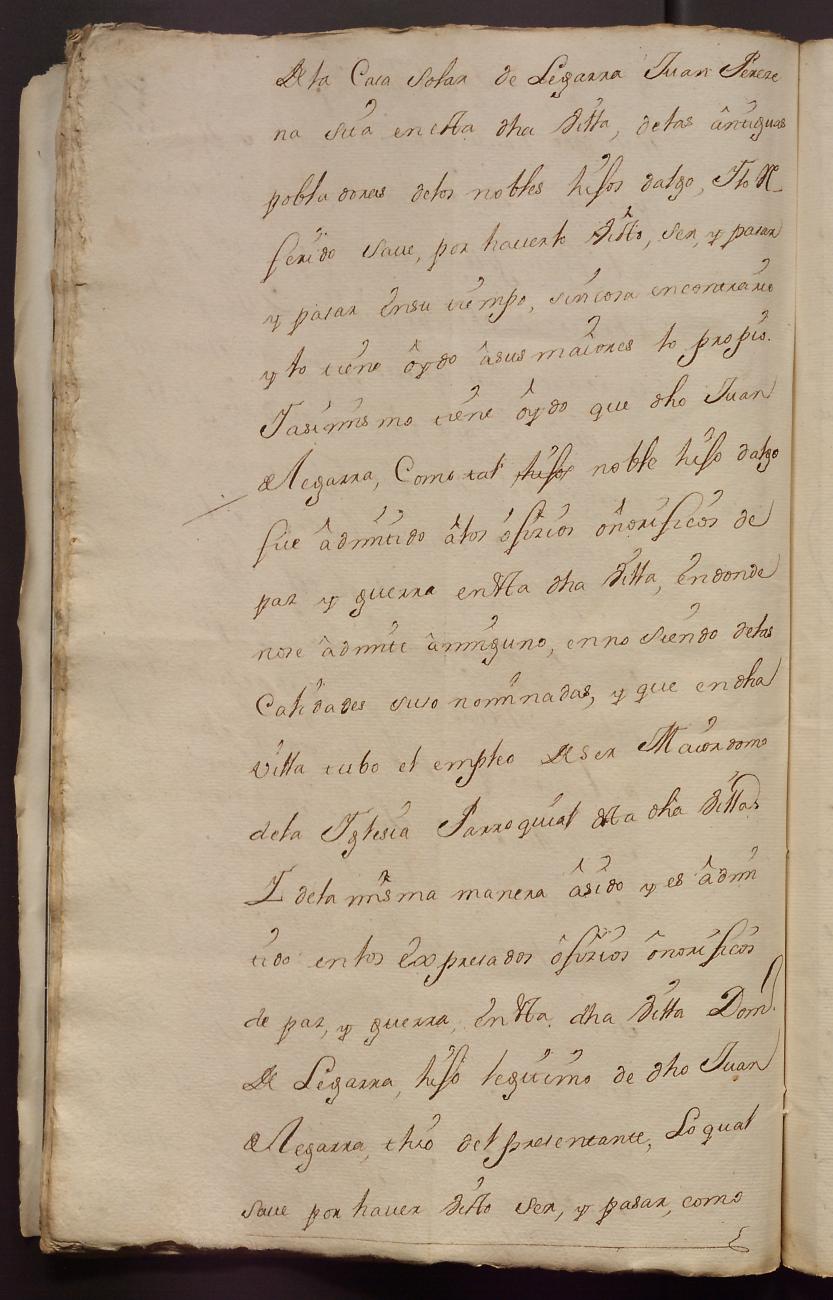 De la Casa Solar de Legarra Juan Perere
na sita en esta dha Villa, de las antiguas
pobladoras de los nobles hijos dalgo, Ylo Re
ferido save, por haverlo Visto, ser, y pasar
y pasar en su tiempo, sin cosa en contrario
y lo tiene oydo a sus maiores lo propio.
Y asimismo tiene oydo que dho Juan
de Legarra, Como tal hijo noble hijo dalgo
fue admitido a los ofizios onorificos de
paz y guerra en esta dha Villa, en donde
no se admite a ninguno, en no siendo de las
Calidades suso nominadas, y que en dha
villa tubo el empleo de ser Maiordomo
de la Yglesia Parroquial desta dha Villa
Y de la misma manera a sido y es admi
tido en los expresados ofizios onorificos
de paz, y guerra, en esta dha Villa Domo
de Legarra, hijo legitimo de dho Juan
de Legarra, thio del presentante, Lo qual
save por haver Visto ser, y pasar, como